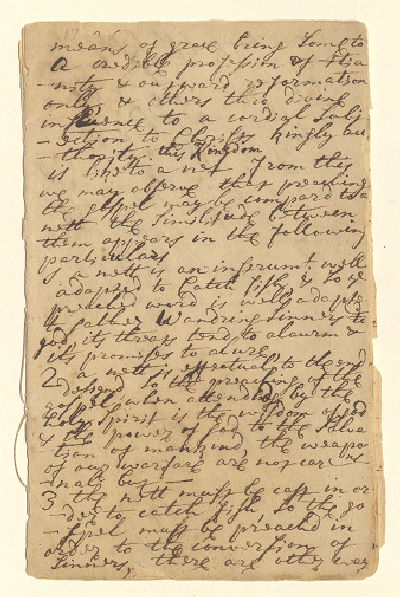 means of grace bring some to
a credible profession of Xtia-
-nity & outward reformation
only, & others thro divine
influence to a cordial Subj-
-ection to Christs kingly au-
-thority this Kingdom
is like to a net from this
we may observe that preaching
the gospel may be compard to a
nett the Similitude between
them appears in the following
particulars
a nett is an instrumt. well
adapted to Catch fish & so ye
preached word is well adapted
to gather Wandring Sinners to
god, its threats tend to alarm &
its promises to alure
2 a nett is effectual to the end
designd So the preaching of the
gospel when attended by the
holy Spirit is the wisdom of god
& the power of god to the Salva
tion of mankind, the weapo
of our warfare are not car
nal but
3 the nett must be cast in or
-der to catch fish So the go
-spel must be preached in
order to the conversion of
Sinners, there are other way